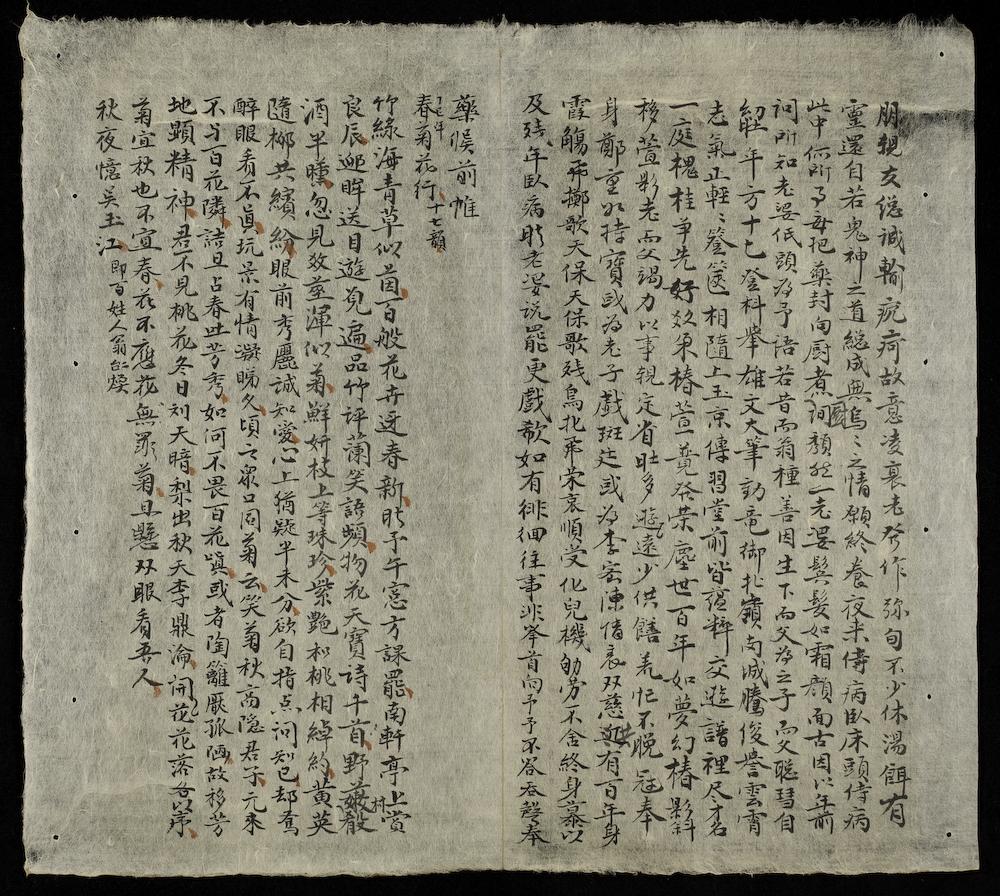 朋親友總誠輸疣疴故意凌衰老發作弥旬不少休湯餌有
靈還自若鬼神之道總成典烏〻之情願終養夜来侍病臥床頭侍病
此中何所事毎把藥封向厨者詞顏延一老婆鬂髮如霜顏面古因以年前
詞所知老婆低頭為予語若昔而翁種善因生下而父為之子而父聡彗自
經年方十七登科舉雄文大筆動竜御北嶺南城騰俊譽雲霄
老氣正軽〻簦篋相隨上玉京傳習堂前皆蘊粹交遊譜裡尽才名
一庭槐桂爭先好放栗椿萱一費發荣塵世百年如夢幻椿影斜
移萱影老而父竭力以事親定省壯多遊遠少供饍羗忙不晚冠奉
身鄭重如持宝或為老子戲斑廷或為李密陳情表双慈具有百年身
霞觴飛擲歌天保天保歌残烏北飛荣哀順受化兒機劬劳不舍終身慕以
及残年臥病時老婆説罷更戲欷如有徘徊往事非举首向予予不答吞声奉
藥候前帷
春菊花行十七韻
竹緑海青草似茵百般花卉迓春新時予午窓方課罷南軒亭上賞
良辰迎眸送目遊覓遍品竹評蘭笑語頻物花天寶詩千首野蔌村殽
酒半曛忽見数莖渾似菊鮮妍枝上等珠珍紫艷松桃相綽約黄英
隨柳共繽紛眼前秀麗誠知愛心上猶疑半未分欲自指点问知已却為
醉眼看不真玩景有情凝睇久頃之衆口同菊云笑菊秋高隐君子元来
不与百花隣詰旦占春此芳秀如何不畏百花嗔或者陶籬厭孤陋故移芳
地顕精神君不見桃花冬日刘天暗梨出秋天李鼎淪開花花落各以序
菊宜秋也不宜春花不應花無罪菊且懸双眼看吾人
秋夜憶吳玉江即百姓人翁仁燦